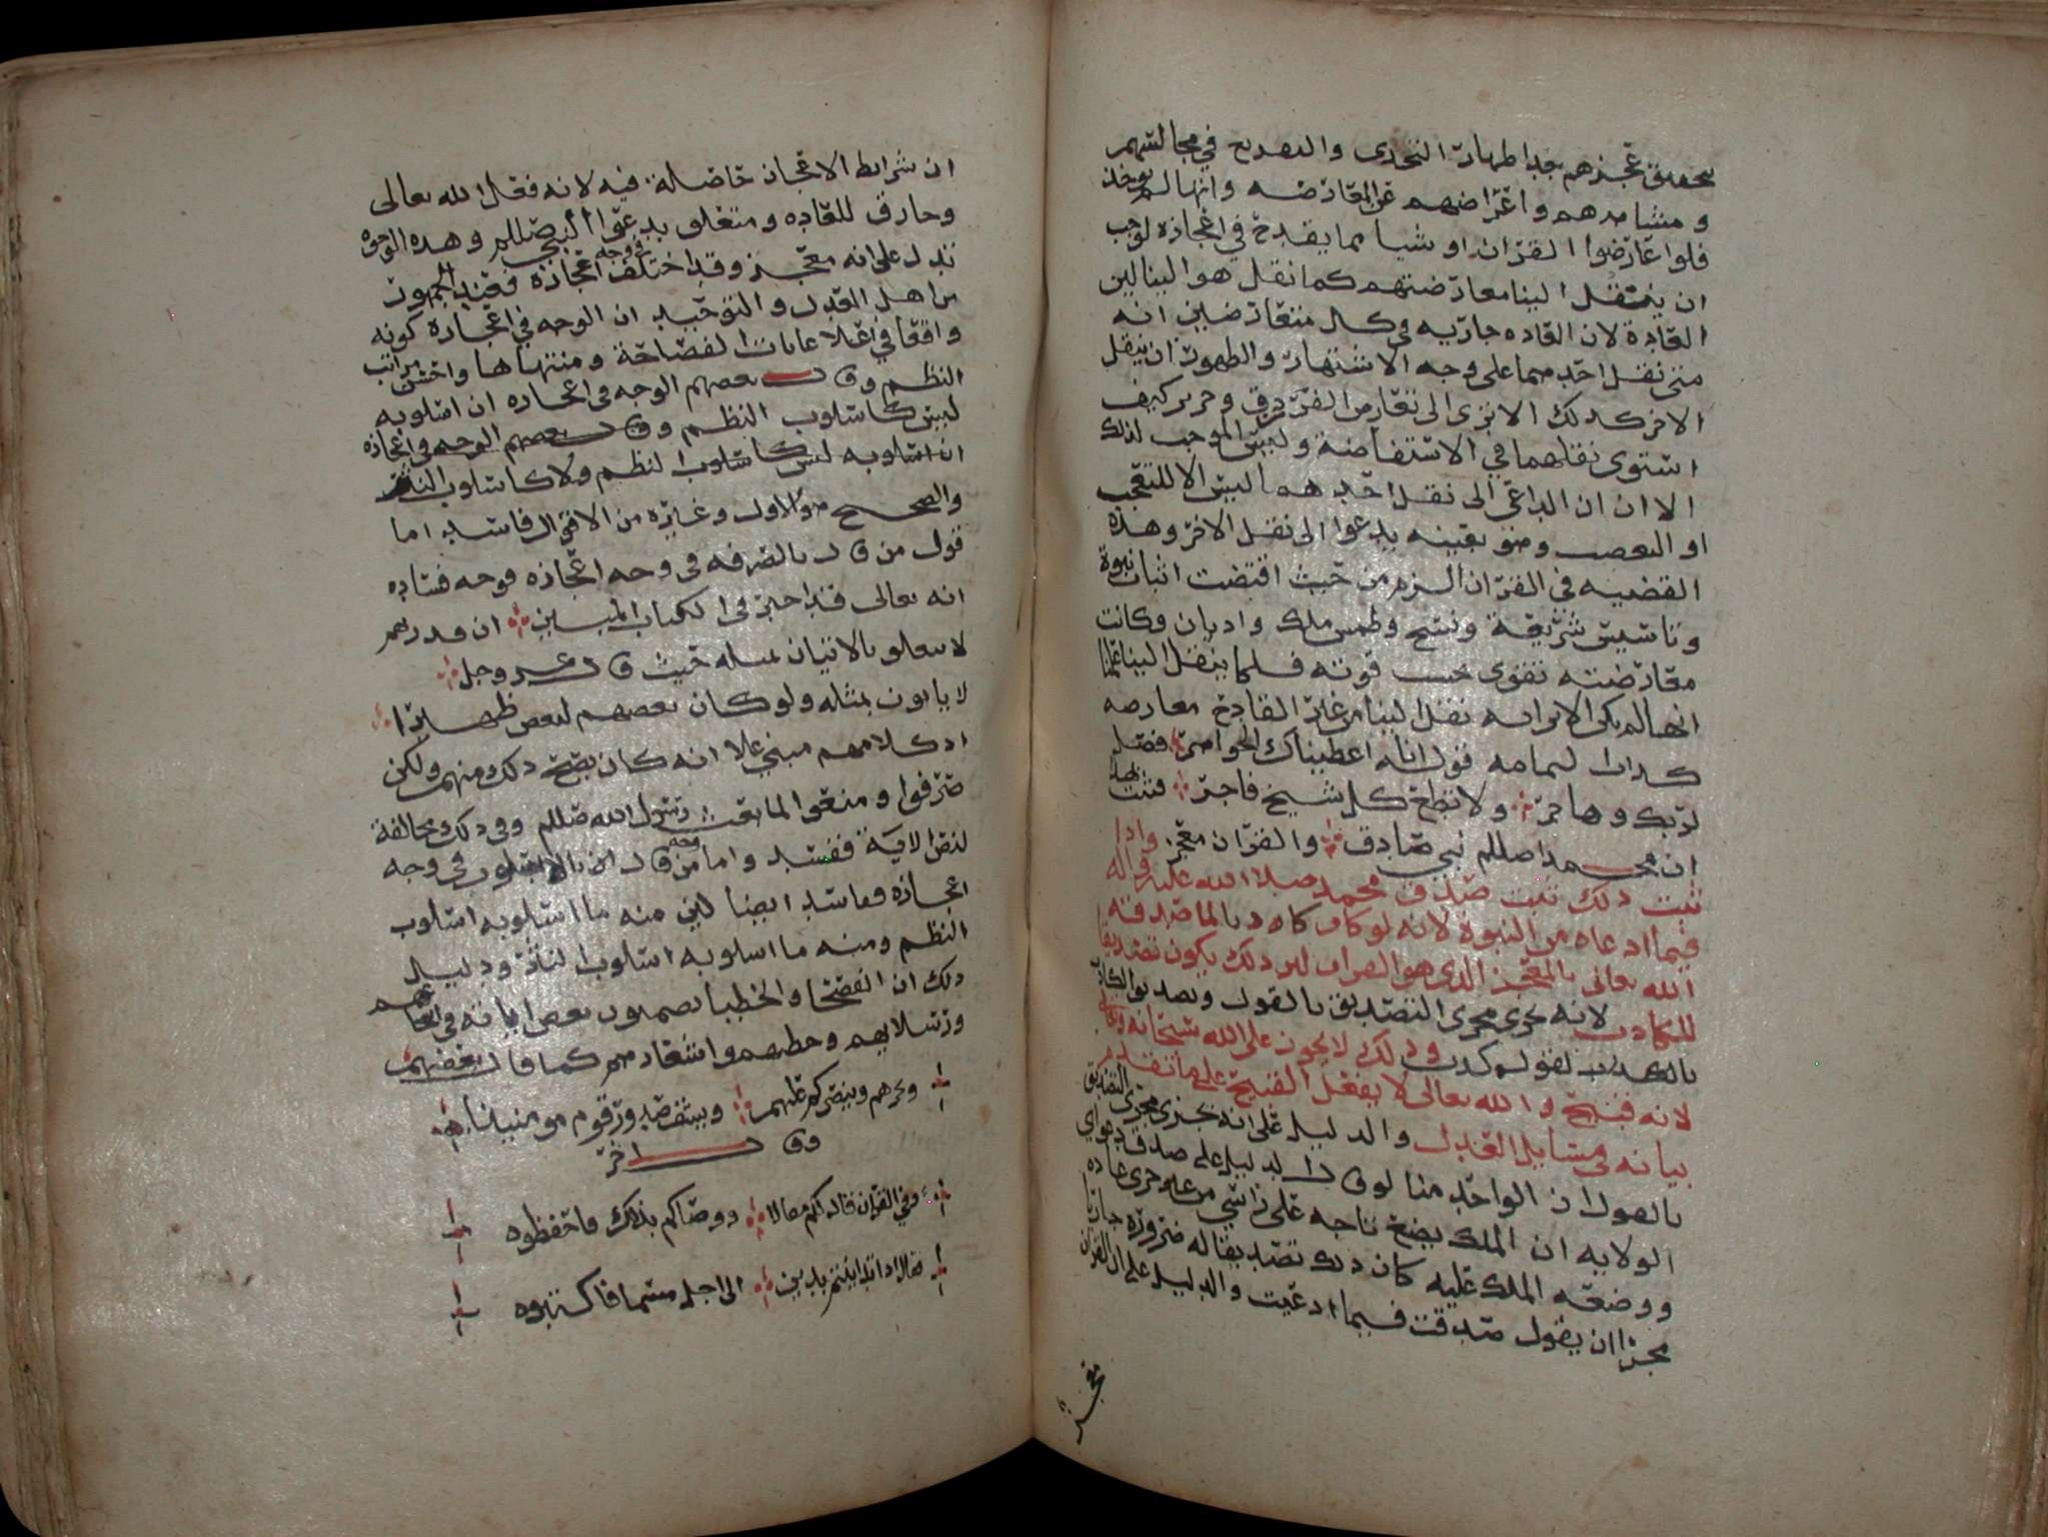 تحقيق عجزهم بعد اظهار التحدي والتقريع في مجالسهم
ومشاهدهم واعراضهم عن المعارضه وانها لم توجد
فلو اعارضوا القران او شيا مما يقدح في اعجازه لوجب
ان ينتقل الينا معارضتهم كما نقل هو الينا لين
العادة لان العاده جاريه في كل متعارضين انه
متى نقل احد هما على وجه الاشتهار والظهور ان ينقل
الاخر كذلك الا ترى الى نقار من الفرزدق وجرير كيف
استوى نقلهما في الاستفاضة وليس الموجب لذلك
الا ان ان الداعي الى نقل احد هما ليس الا للتعجب
او التعصب وهو بعينه يدعوا الى نقل الاخر وهذه
القضيه في القران الزم من حيث اقتضت اثبات نبوة
وتاسيس شريعة ونسخ وطمس ملك واديان وكانت
معارضته تقوى بحسب قوته فلما ينقل الينا علمنا
انها لم يكن الا تراه نقل الينا من غير القادح معارضه
كذاب ليمامه قول انا اعطيناك الجواهر فصل
لربك وهاجر ولا تطع كل شيخ فاجر فثبت بهذا
ان محمدا صللم نبي صادق والقران معجز واذا
ثبت ذلك ثبت صدق محمد صلا الله عليه واله
فيما ادعاه من النبوة لانه لو كان كاذبا لما صدقه
الله تعالى بالمعجز الذي هو القران لان ذلك يكون تصديقا
للكاذب لانه يجري مجرى التصديق بالقول وتصديق الكاذب
بالكذب لقوله كذب وذلك لا يجوز على الله سبحانه وتعالى
لانه قبيح والله تعالى لا يفعل القبيح على ما تقدم
بيانه في مسايل العدل والدليل على انه يجري مجرى التصديق
بالقول ان الواحد منا لو قال الدليل على صدق دعواي
الولايه ان الملك يضع تاجه على راسي من غير جري عاده
ووضعه الملك عليه كان ذلك تصديقا له ضرورة جاريا
مجرا ان يقول صدقت فيما ادعيت والدليل على ان القران
معجز
ان شرايط الاعجاز حاصلة فيه لانه فعل الله تعالى
وخارق للعاده ومتعلق بدعوا النبي صللم وهذه الوجوه
تدل على انه معجز وقد اختلف في وجه اعجازه فعند الجمهور
من اهل العدل والتوحيد ان الوجه في اعجازه كونه
واقعا في اعلا غايات الفصاحة ومنتهاها واحسن مراتب
النظم وقال بعضهم الوجه في اعجازه ان اسلوبه
ليس كاسلوب النظم وقال بعضهم الوجه في اعجازه
ان اسلوبه ليس كاسلوب النظم ولا كاسلوب النثر
والصحيح هو الاول وغيره من الاقوال فاسد اما
قول من قال بالصرفه في وجه اعجازه فوجه فساده
انه تعالى قد اخبر في الكتاب المبين ان قدرهم
لا يتعلق بالاتيان بمثله حيث قال عز وجل
لا ياتون بمثله ولو كان بعضهم لبعض ظهيرا
اذ كلامهم مبني علا انه كان يصح ذلك منهم ولكن
صرفوا ومنعوا لما بعث رسول الله صللم وفي ذلك مخالفة
لنص الاية ففسد واما من قال ان بالاسلوب في وجه
اعجازه ففاسد ايضا لين منه ما اسلوبه اسلوب
النظم ومنه ما اسلوبه اسلوب النثر ودليل
ذلك ان الفصحا والخطبا يضمنون بعض اياته في
ورسلايهم وخطبهم واشعارهم كما قال بعضهم
ويخزهم وينصركم عليهم ويشف صدور قوم مومنينا
وقال اخر
وفي القران قال لكم مقالا ووصاكم بذلك فاحفظوه
فقال اذا تداينتم بدين الى اجل مسما فاكتبوه